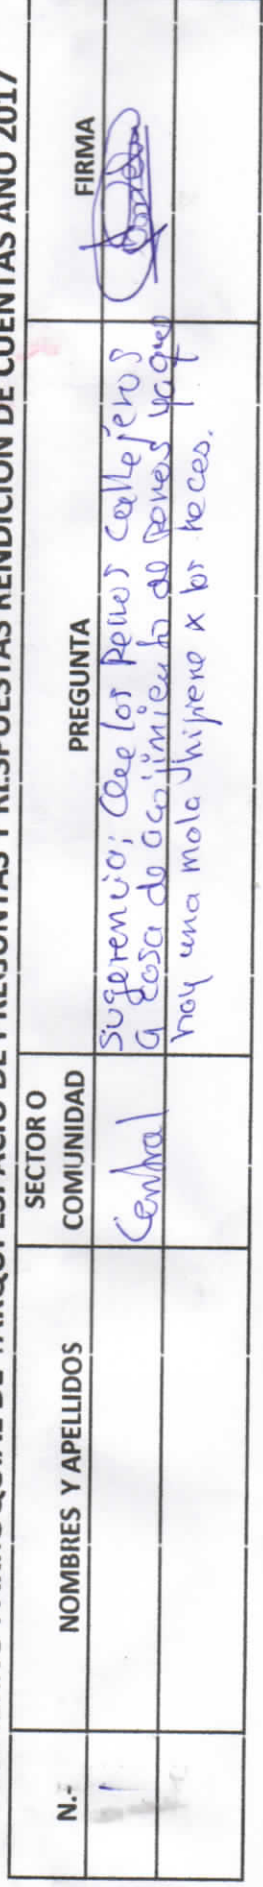 PARROQUIAL DE TARQUI ESPACIO DE PREGUNTAS Y RESPUESTAS RENDICION DE CUENTAS AÑO 2017
N.-
NOMBRES Y APELLIDOS
SECTOR O
COMUNIDAD
PREGUNTA
FIRMA
1
Central
Sugerencia; Que los perros callejeros
a casa de acojimiento de perros ya que
hay una mala higiene x las heces.